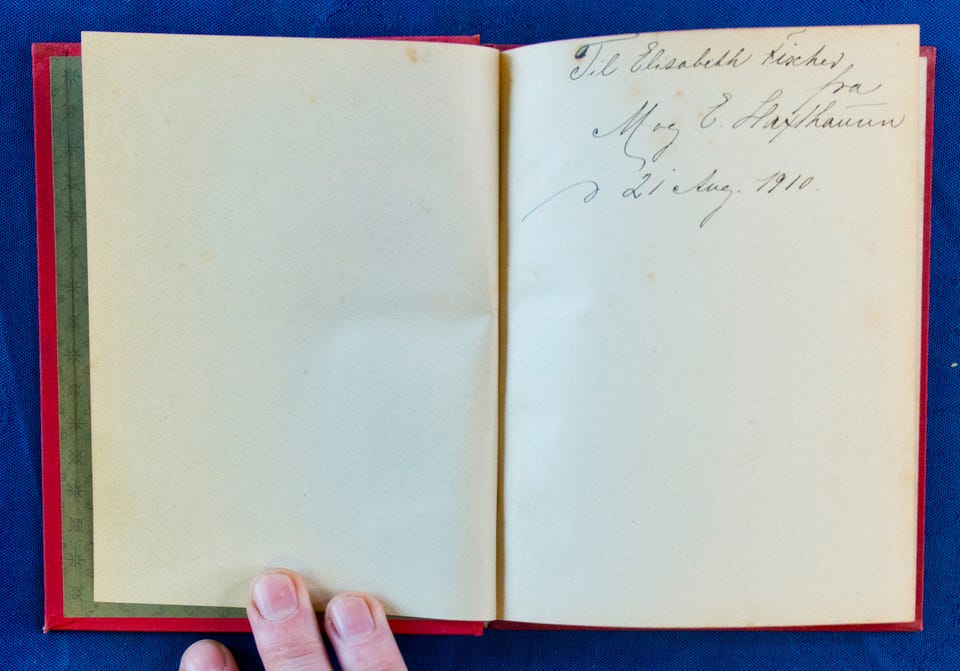 Til Elisabeth Fischer
fra
M og E. Haxthausen
d 21 Aug. 1910.